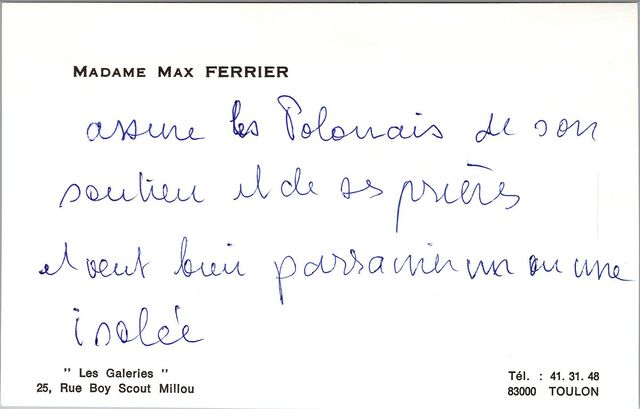 MADAME MAX FERRIER
assure les Polonais de son
soutien et de ses prières
et veut bien parrainer un ou une
isolée
" Les Galeries "
25, Rue Boy Scout Millou
Tél. : 41. 31. 48
83000 TOULON